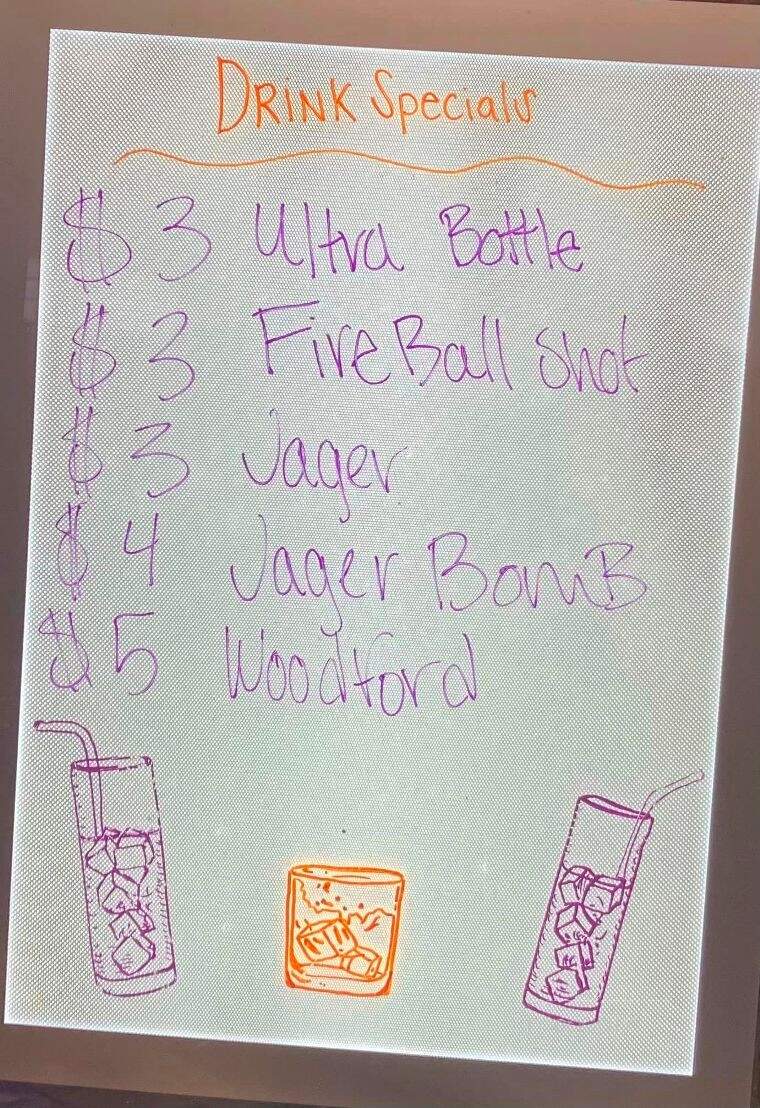 DRINK Specials
$3 Ultra Bottle
$3 FireBall Shot
$3 Jager
$4 Jager BomB
$5 Woodford